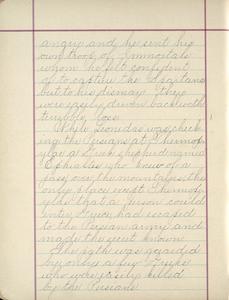 angry and he sent his
own troop of Immortals
whom he felt confident
of to capture the Spartans
but to his dismay they
were easily driven back with
terrible loss.
While Leonidas was check
ing the Persians at Thermop
ylae a Greek shepherd named
Ephialtes who knew of a
pass over the mountains, the
only place except Thermop
ylae that a person could
enter Greece had escaped
to the Persian army and
made the secret known.
The path was guarded
by only a few Greeks
who were easily killed
by the Persians